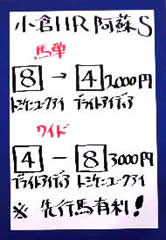 小倉11R 阿蘇S
馬単
8 → 4 2,000円
トミケンユークアイ ブライトアイディア
ワイド
4 － 8 3000円
ブライトアイディア トミケンユークアイ
※ 先行馬有利!